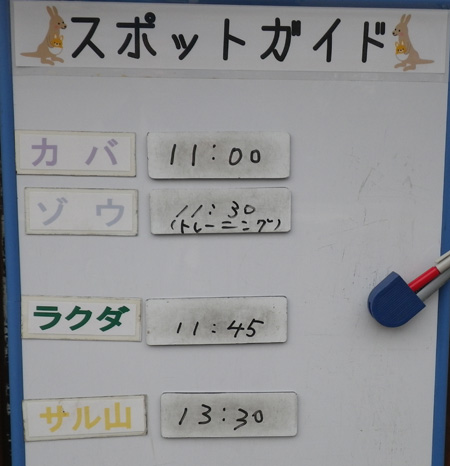 スポットガイド
カバ 11:00
ゾウ 11:30
(トレーニング)
ラクダ 11:45
サル山 13:30